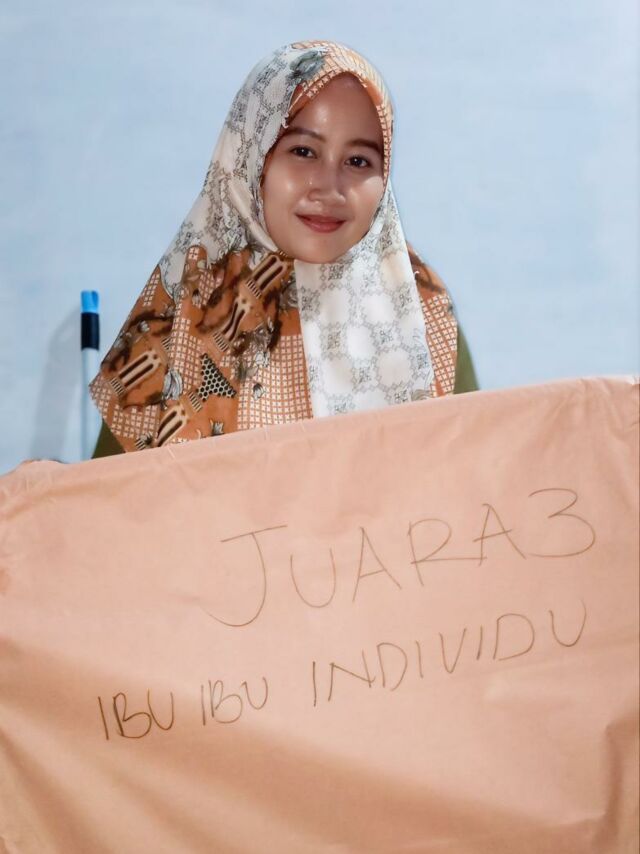 JUARA 3
IBU IBU INDIVIDU